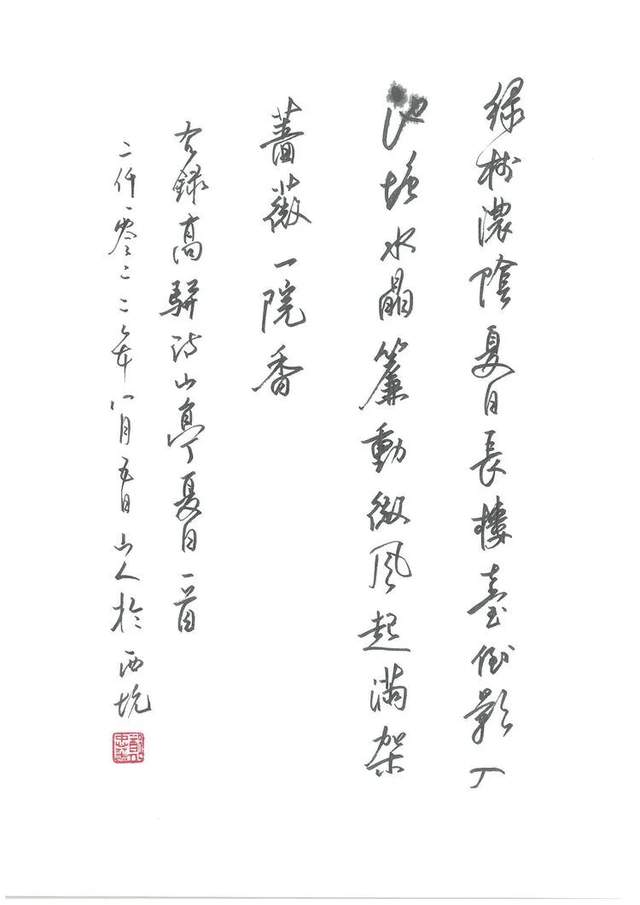 綠樹濃陰夏日長樓臺倒影入
池塘水晶簾動微風起滿架
薔薇一院香
右錄高駢詩山亭夏日一首
二仟零二二年八月五日山人於西坑